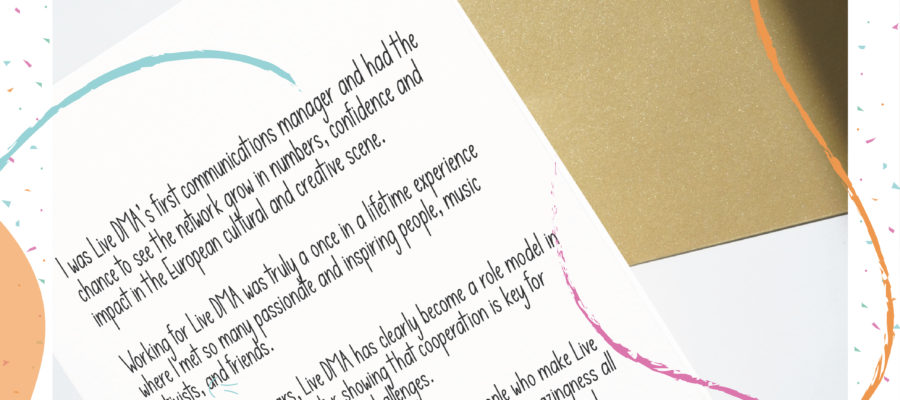 I was Live DMA's first communications manager and had the
chance to see the network grow in numbers, confidence and
impact in the European cultural and creative scene.
Working for Live DMA was truly a once in a lifetime experience
where I met so many passionate and inspiring people, music
and friends.
Live DMA has clearly become a role model in
showing that cooperation is key for
who make Live
all